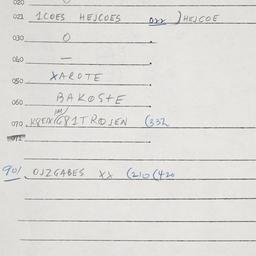 020
021 1COES HEJCOES 022 ) HEJCOE
030 O
060 —
050 XAROTE
060 BAKOSTE
070
071
901 OJZGABES XX (210 (420